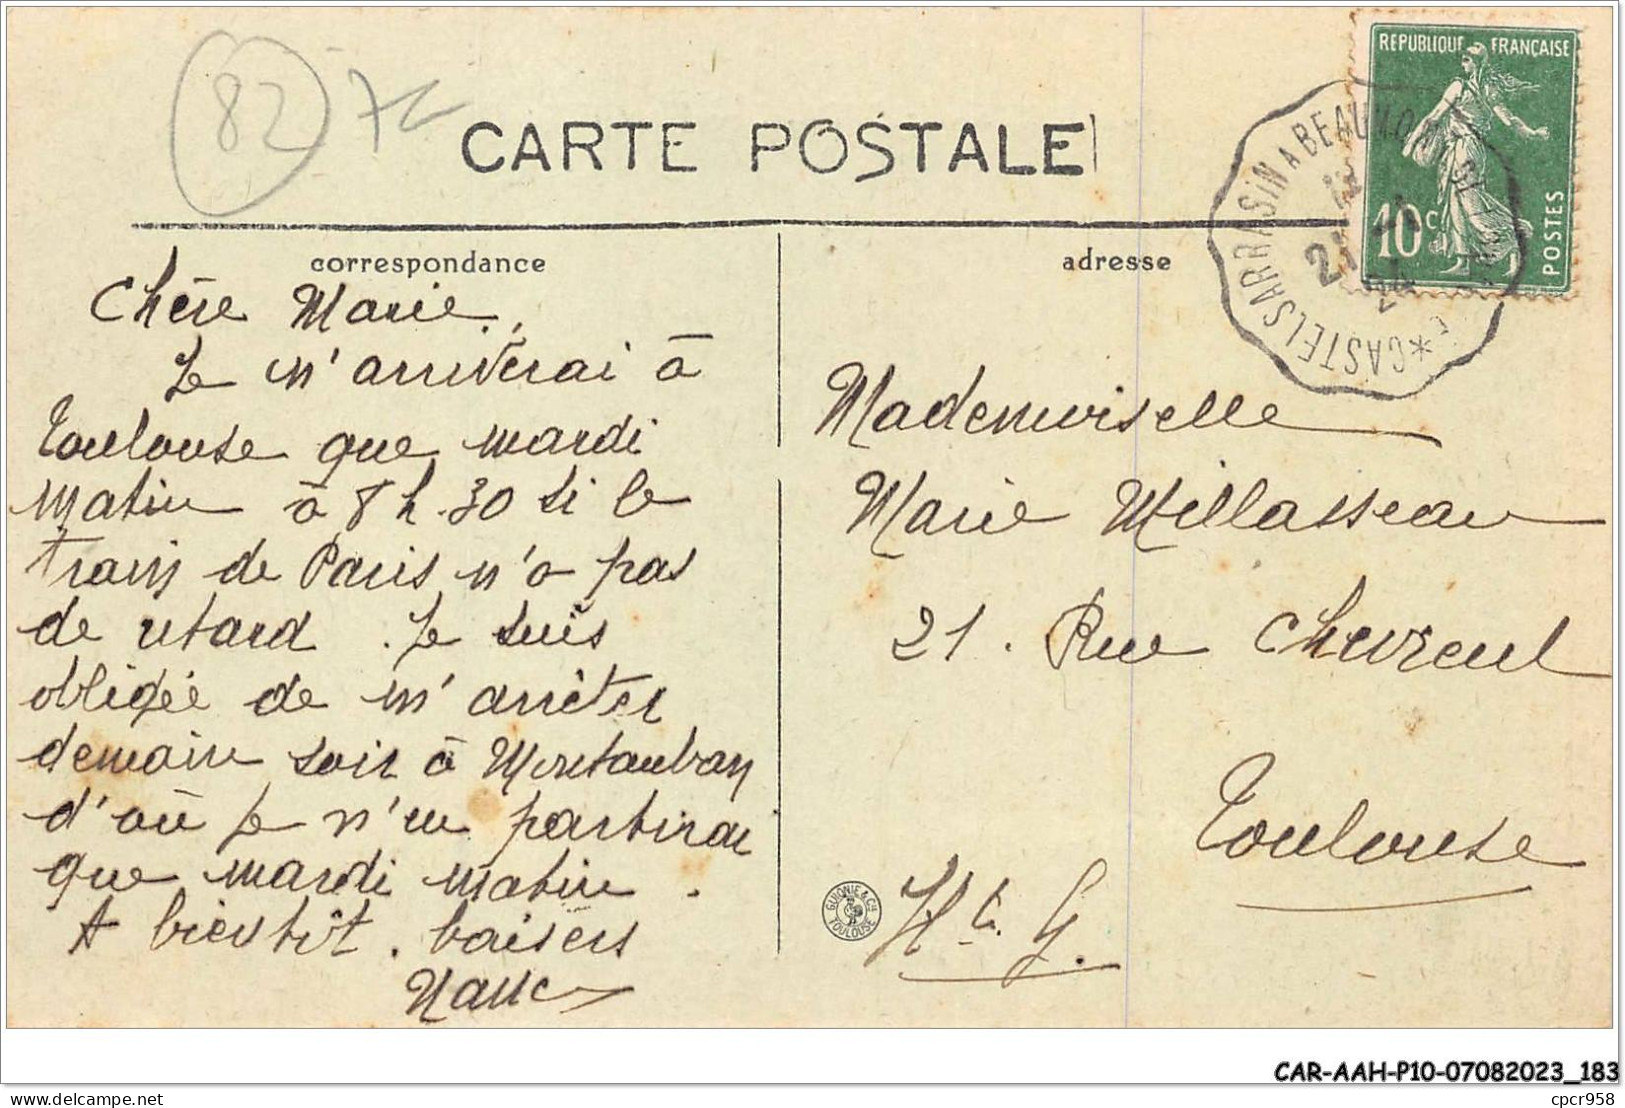 82 
CARTE POSTALE
REPUBLIQUE FRANÇAISE
10c
POSTES
CASTELSARRASIN A BEAUMONT
21
24
correspondance
adresse
Chère Marie,
Je n'arriverai à
Toulouse que mardi
matin à 8 h. 30 si le
train de Paris n'a pas
de retard. Je suis
obligée de m'arrêter
demain soir à Montauban
d'où je n'en partirai
que mardi matin.
A bientôt. baisers
Mademoiselle
Marie Millasseau
21. Rue Chevreul
Toulouse
Hte. G.
GUIONIE & Cie
TOULOUSE
CAR-AAH-P10-07082023_183
delcampe.net
cpcr958